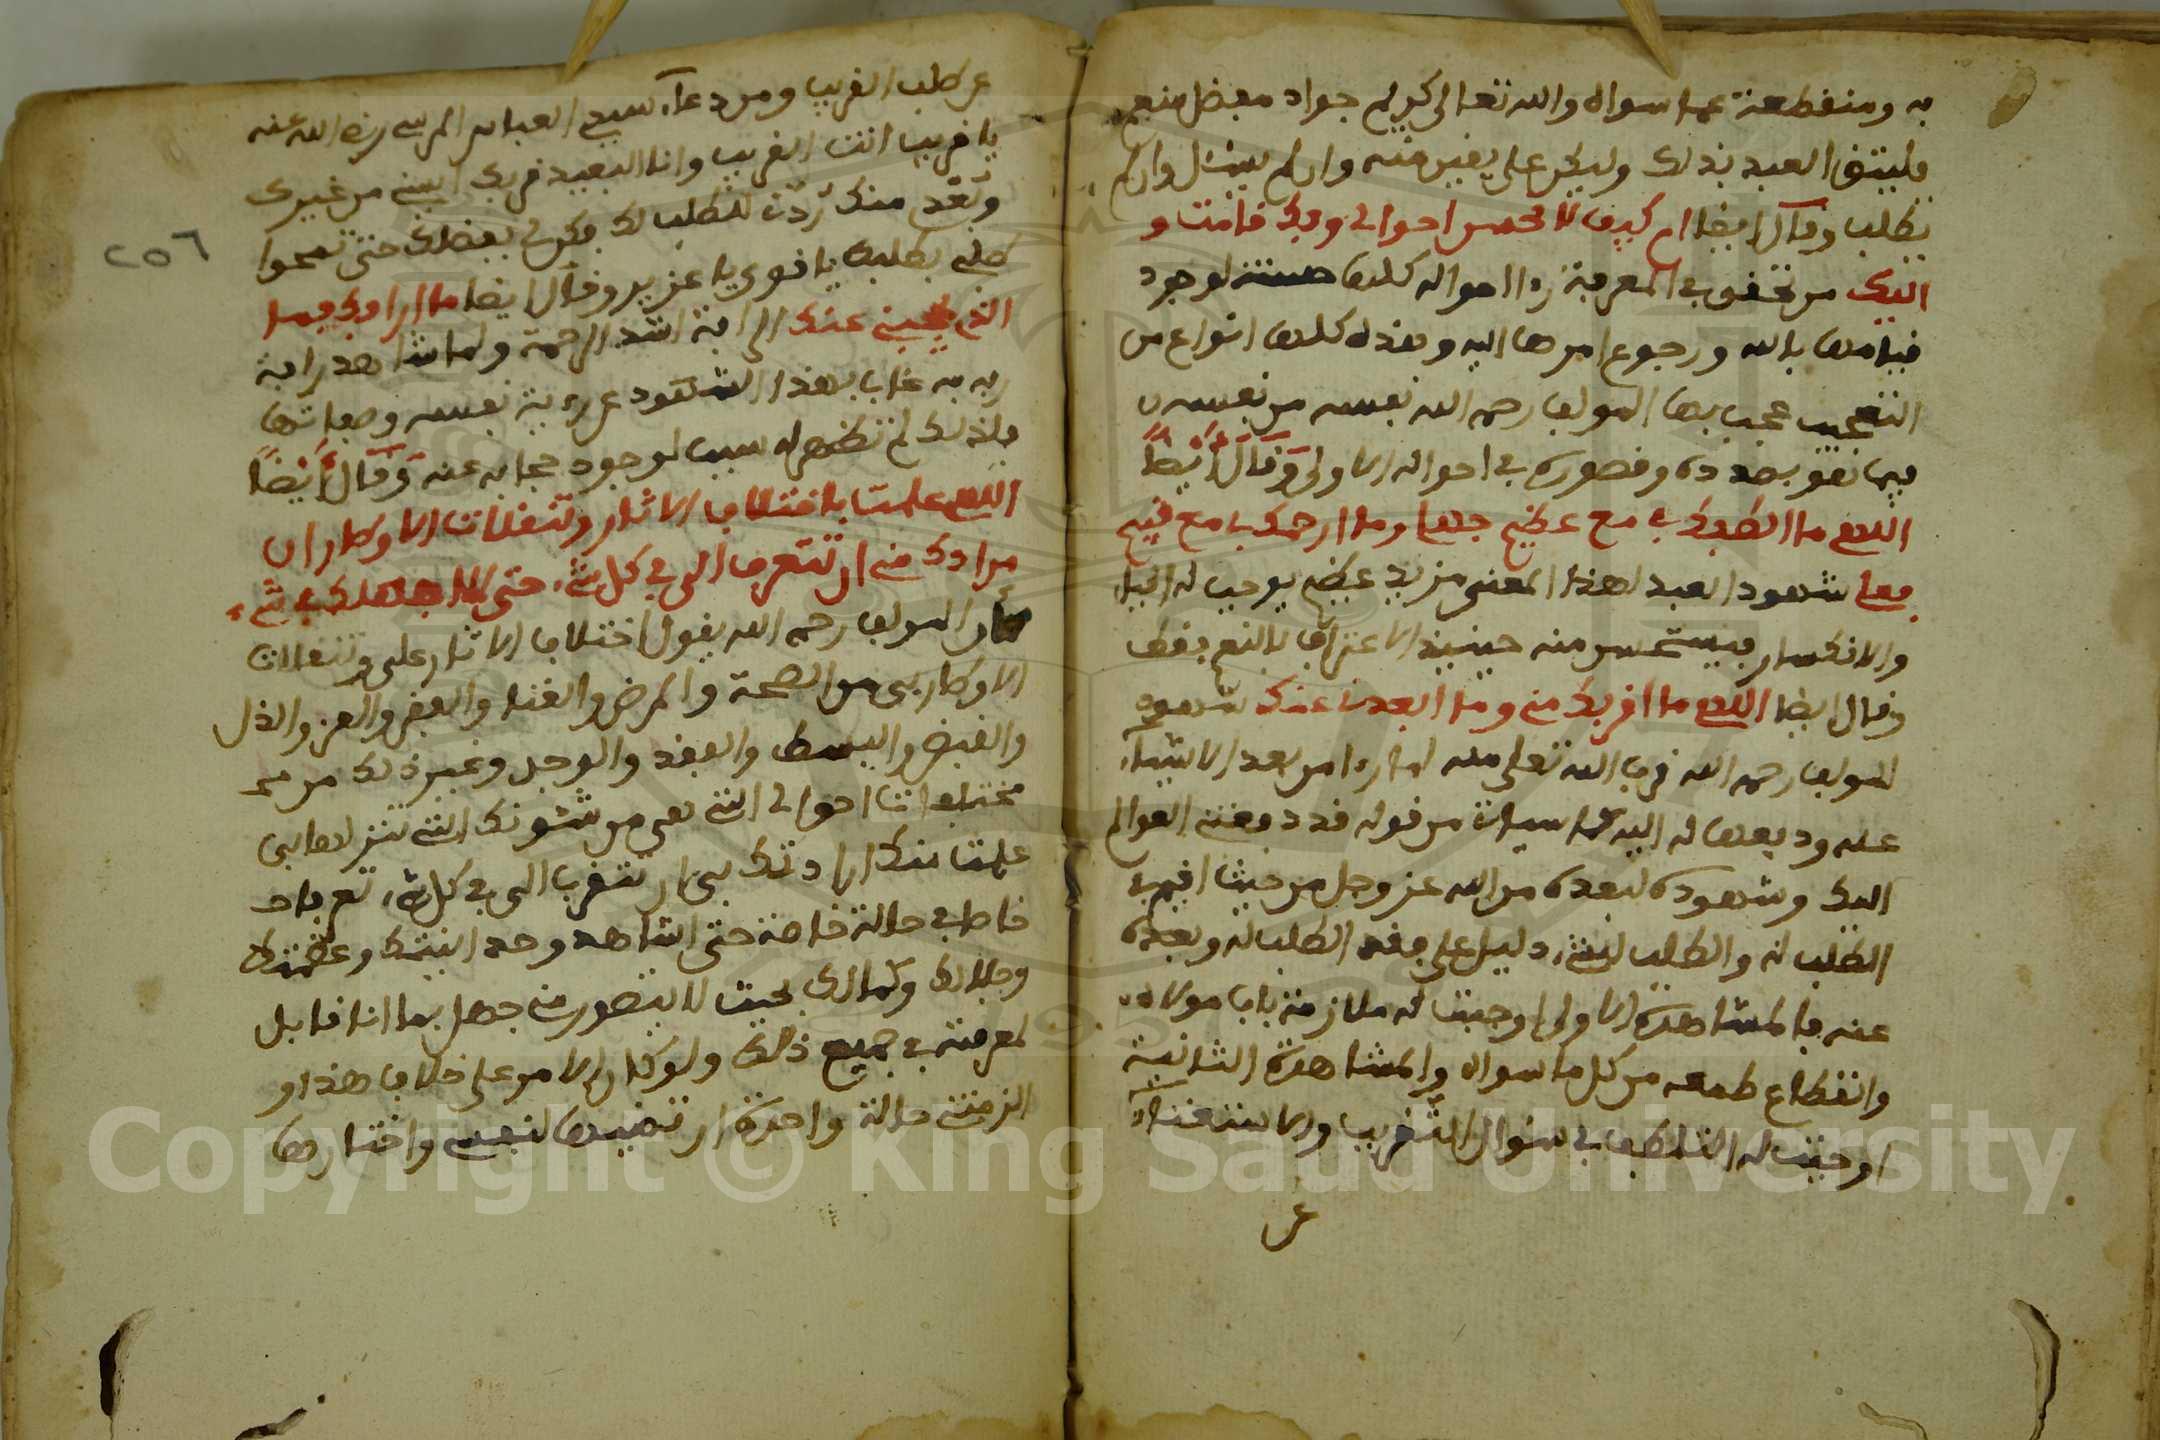 به ومنقطعة عما سواه والله تعالى كريم جواد مفضل منعم
فليثق العبد بذلك وليكن على يقين منه وان لم يسئل وان لم
يطلب وقال ايضا ام كيف لا تحسن احوالى وبك قامت و
اليك من تحقق في المعرفة رءا احواله كلها حسنة لوجود
قيامها بالله ورجوع امرها اليه وهذه كلها انواع من
التعجب عجب بها المولف رحمه الله نفسه من نفسه
فيما هو بصدده وقصوره في احواله الاولى وقال ايضا
اللهم ما الطفك بي مع عظيم جهلي وما ارحمك بي مع قبيح
فعلي شهود العبد لهذا المعنى مزيد عظيم يوجب له الحيا
والانكسار فيستحسن منه حينيذ الاعتراف بالنعم فقط
وقال ايضا اللهم ما اقربك مني وما ابعدني عنك شهود
المولف رحمه الله قرب الله تعلى منه اما رءا من بعد الاشياء
عنه ودفعها له اليه كما سياتي من قوله قد دفعتني العوالم
اليك وشهوده لبعده من الله عز وجل من حيث اقيم في
الطلب له والطلب لشيء دليل على فقد الطلب له وبعده
عنه فالمشاهدة الاولى اوجبت له ملازمة باب مولاه
وانقطاع طمعه من كل ما سواه والمشاهدة الثانية
اوجبت له التلطف في سؤال التقريب والاستغناء
عن
عن طلب القريب ومن دعاء سيدي العباس المرسي رضي الله عنه
يا قريب انت القريب وانا البعيد قربك ايسني من غيرك
وبعدي منك ردني للطلب لك فكن لي بفضلك حتى تمحوا
طلبي بطلبك يا قوي يا عزيز وقال ايضا ما ارافك بي فما
الذي يحجبني عنك الرافة اشد الرحمة ولما شاهد رافة
ربه به غاب بهذا الشهود عن رءية نفسه وصفاتها
فلذلك لم تظهر له سبب لوجود حجابه عنه وقال ايضا
اللهم علمت باختلاف الاثار وتنقلات الاوطار ان
مرادك مني ان تتعرف الى في كل شيء حتى لا اجهلك في شيء
كأن المولف رحمه الله يقول اختلاف الاثار على وتنقلات
الاوطار بي من الصحة والمرض والغنا والفقر والعز والذل
والقبض والبسط والفقد والوجد وغير ذلك من
مختلفات احوالى التي هي من شئونك التي تنزلها بي
علمت منك ارادتك بي ان تتقرب الى في كل شيء تعرفا
خاصا في حالة خاصة حتى اشاهد وحدانيتك وعظمتك
وجلالك وكمالك بحيث لا يتصور مني جهل بما انا قابل
لمعرفته في جميع ذلك ولو كان الامر على خلاف هذا و
الزمتني حالة واحدة ارتضيها لنفسي واختارها
٢٥٦
Copyright © King Saud University
1957